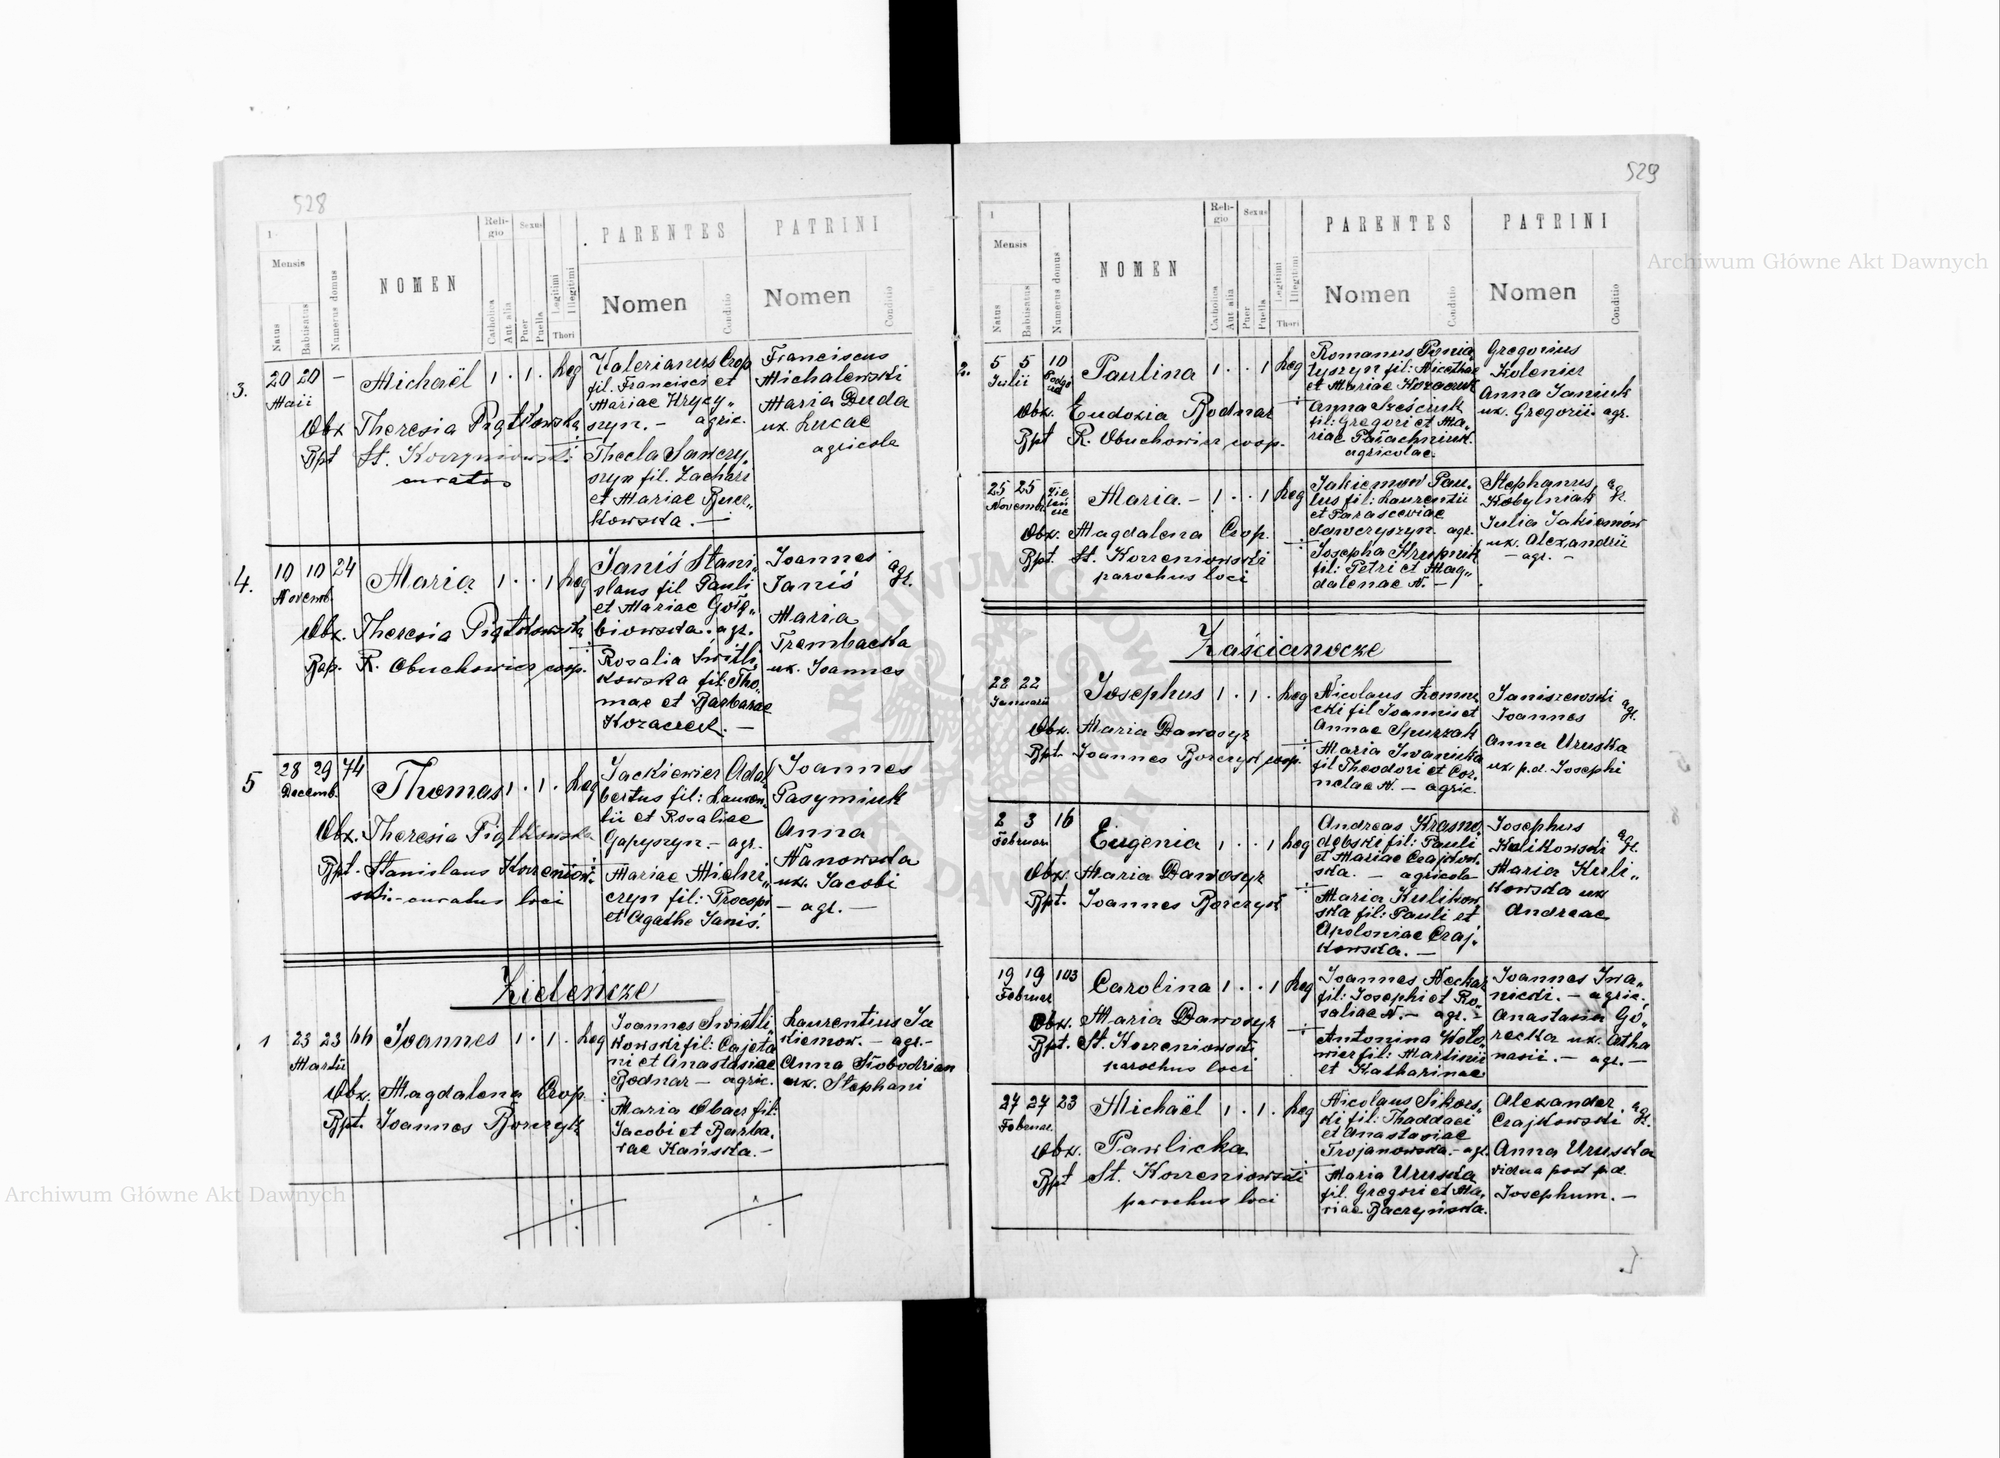 528
1
Mensis
Natus
Babtisatus
Numerus domus
NOMEN
Reli-
gio
Catholica
Aut alia
Sexus
Puer
Puella
Legitimi
Illegitimi
Thori
PARENTES
Nomen
Conditio
PATRINI
Nomen
Conditio
3.
20 20 –
Maii
Michaël
1 · 1 · leg
Obx Theresia Piątkowska
Bpt St. Korzyniowski
curatus
Valerianus Crop
fil. Francisci et
Mariae Hrycy„
szyn. – agric.
Thecla Sawczy,
szyn fil. Zachari
et Mariae Bucz„
kowska. –
Franciscus
Michalewski
Maria Duda
ux. Lucae
agricola
4.
10 10 24
Novemb.
Maria
1 · · 1 leg
Obx. Theresia Piątkowska
Bap. R. Obuchowicz coop.
Janiś Stani„
slaus fil Pauli
et Mariae Gołę„
biowska. agr.
Rosalia Switli,
kowska fil: Tho„
mae et Barbarae
Kozaczek. –
Joannes agr.
Janiś
Maria
Trembacka
ux. Joannes
5
28 29 74
Decemb.
Thomas
1 · 1 · leg
Obx. Theresia Piątkowska
Bpt. Stanislaus Korzeniow„
ski. – curatus loci
Jackiewicz Adal
bertus fil: Lauren,
tii et Rosaliae
Gapyszyn. – agr.
Mariae Michni„
czyn fil: Procopi
et Agathe Janiś.
Joannes
Pasymiuk
Anna
Nanowska
ux. Jacobi
– agr. –
Zielencze
1
23 23 66
Martii
Joannes
1 · 1 · leg
Obx. Magdalena Crop.
Bpt. Joannes Borczyk
Joannes Swietli„
kowski fil: Cajeta
ni et Anastasiae
Bodnar – agric.
Maria Obacz fil:
Jacobi et Barba„
rae Kańska. –
Laurentius Ja
kiemow. – agr. –
Anna Słobodzian
ux. Stephani
529
1
Mensis
Natus
Babtisatus
Numerus domus
NOMEN
Reli-
gio
Catholica
Aut alia
Sexus
Puer
Puella
Legitimi
Illegitimi
Thori
PARENTES
Nomen
Conditio
PATRINI
Nomen
Conditio
2.
5 5 10
Julii
Paulina
1 · · 1 leg
Obx. Eudoxia Bodnar
Bpt R. Obuchowicz coop.
Romanus Ponia„
tyszyn fil: Nicethae
et Mariae Kozaczuk
Anna Sześciuk
fil: Gregori et Ma„
riae Parachniuk.
agricolae.
Gregorius
Kolenicz
Anna Janiuk
ux. Gregorii agr.
25 25
Novemb.
Maria –
1 · · 1 leg
Obx. Magdalena Crop.
Bpt. St. Korzeniowski
parochus loci
Jakiemow Pau„
lus fil: Laurentii
et Parasceviae
Sawczyszyn. agr.
Josepha Krupnik
fil: Petri et Mag„
dalenae N. –
Stephanus agr.
Kobylniak
Julia Jakiemów
ux. Alexandri
– agr. –
Zaścianocze
22 22
Januarii
Josephus
1 · 1 · leg
Obx. Maria Dawosyr
Bpt. Joannes Borczyk coop.
Nicolaus Lewic
cki fil Joannis et
Annae Spurzak
Maria Iwanicka
fil Theodori et Cor„
nelae N. – agric.
Janiszewski agr.
Joannes
Anna Uruska
ux. p.d. Josephi
2 3 16
Februar.
Eugenia
1 · · 1 leg
Obx. Maria Dawosyr
Bpt. Joannes Borczyk
Andreas Krasno
dębski fil: Pauli
et Mariae Czajkow„
ska. – agricola
Maria Kulikow„
ska fil: Pauli et
Apoloniae Czaj„
kowska. –
Josephus agr.
Kulikowski
Maria Kuli„
kowska ux
Andreae
19 19 103
Februar
Carolina
1 · · 1 leg
Obx. Maria Dawosyr
Bpt. St. Korzeniowski
parochus loci
Joannes Neckar
fil: Josephi et Ro„
saliae N. – agr. –
Antonina Woło„
wicz fil: Martinii
et Katharinae
Joannes Iwa„
nicki. – agric.
Anastasia Gó„
recka ux. Atha
nasii. – agr. –
27 27 23
Februar.
Michaël
1 · 1 · leg
Obx. Pawlicka
Bpt St. Korzeniowski
parochus loci
Nicolaus Sikors„
ki fil: Thaddaei
et Anastasiae
Trojanowska. – agr.
Maria Uruska
fil. Gregori et Ma„
riae Baczyńska.
Alexander agr.
Czajkowski
Anna Uruska
vidua post p.d.
Josephum. –
Archiwum Główne Akt Dawnych
Archiwum Główne Akt Dawnych
ARCHIWUM GŁÓWNE AKT DAWNYCH